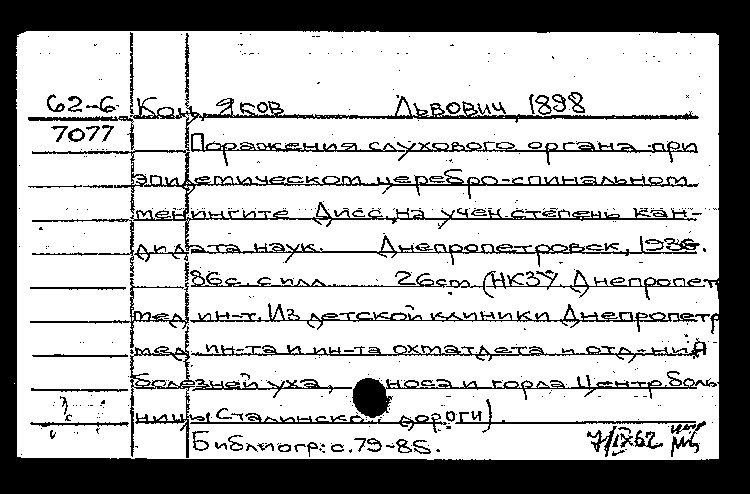 62-6 Кац, Яков Львович, 1898
7077 Поражения слухового органа при
эпидемическом церебро-спинальном
менингите Дисс. на учен. степень кан-
дидата наук. Днепропетровск, 1936.
86с. с илл. 26см (НКЗУ Днепропет
мед. ин-т. Из детской клиники Днепропетр
мед. ин-та и ин-та охматдета и отд-ний
болезней уха, носа и горла Центр. боль-
ницы Сталинской дороги).
Библиогр: с. 79-85.
7/IX62